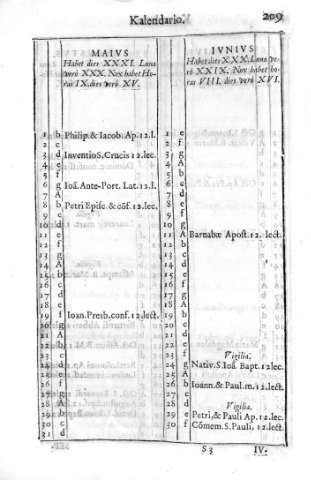 Kalendario.
209
MAIVS
Habet dies XXXI. Luna
verò XXX. Nox habet Ho-
ras IX. dies verò XV.
1 b Philip. & Iacob. Ap. 12. l.
2 c
3 d Inventio S. Crucis 12. lec.
4 e
5 f
6 g Ioā. Ante-Port. Lat. 12. l.
7 A
8 b Petri Episc. & cōf. 12. lec.
9 c
10 d
11 e
12 f
13 g
14 A
15 b
16 c
17 d
18 e
19 f Ioan. Presb. conf. 12. lect.
20 g
21 A
22 b
23 c
24 d
25 e
26 f
27 g
28 A
29 b
30 c
31 d
IVNIVS
Habet dies XXX. Luna ve-
rò XXIX. Nox habet ho-
ras VIII. dies verò XVI.
1 e
2 f
3 g
4 A
5 b
6 c
7 d
8 e
9 f
10 g
11 A Barnabæ Apost. 12. lect.
12 b
13 c
14 d
15 e
16 f
17 g
18 A
19 b
20 c
21 d
22 e
23 f Vigilia.
24 g Nativ. S. Ioā. Bapt. 12. lec.
25 A
26 b Ioann. & Paul. m. 12. lect.
27 c
28 d Vigilia.
29 e Petri, & Pauli Ap. 12. lec.
30 f Cōmem. S. Pauli, 12. lect.
S 3
IV.